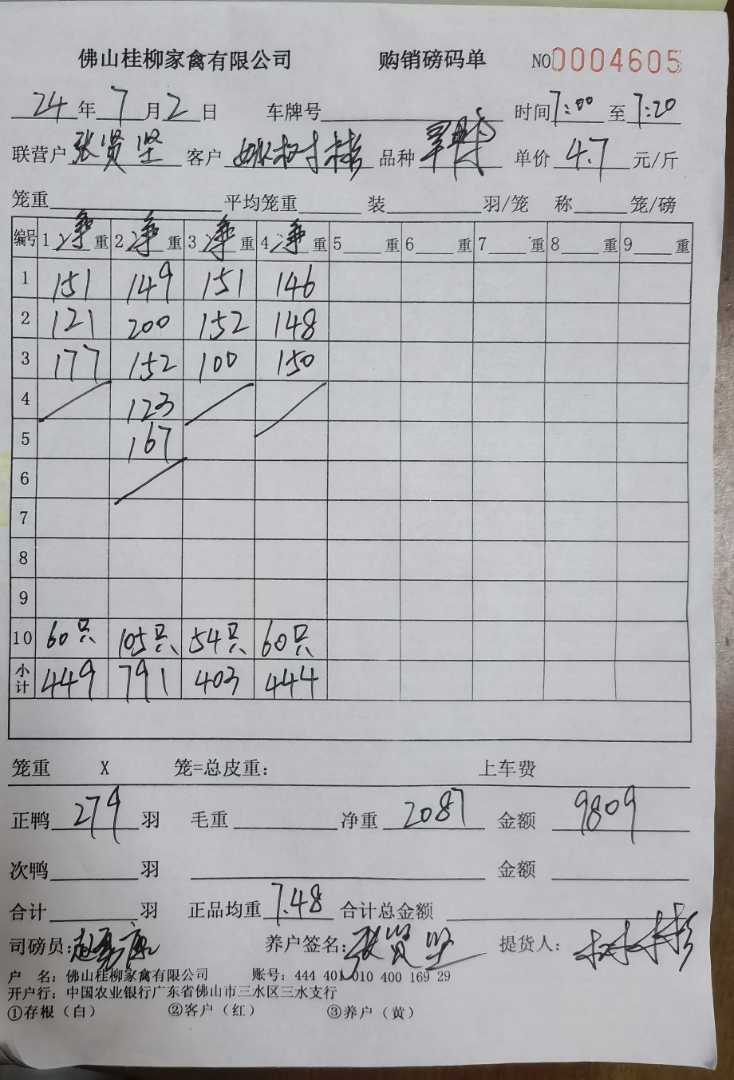 佛山桂柳家禽有限公司 购销磅码单 NO0004605
24年7月2日 车牌号 时间7:00至7:20
联营户张贤坚 客户 姚树彬 品种 单价4.7元/斤
笼重 平均笼重 装 羽/笼 称 笼/磅
编号 1净重 2净重 3净重 4净重 5 重 6 重 7 重 8 重 9 重
1 151 149 151 146
2 121 200 152 148
3 177 152 100 150
4 123
5 167
6
7
8
9
10 60只 105只 54只 60只
小计 449 791 403 444
笼重 X 笼=总皮重: 上车费
正鸭279羽 毛重 净重2087 金额9809
次鸭 羽 金额
合计 羽 正品均重7.48 合计总金额
司磅员: 养户签名:张贤坚 提货人:
户 名:佛山桂柳家禽有限公司 账号:444 401 010 400 169 29
开户行:中国农业银行广东省佛山市三水区三水支行
①存根(白) ②客户(红) ③养户(黄)